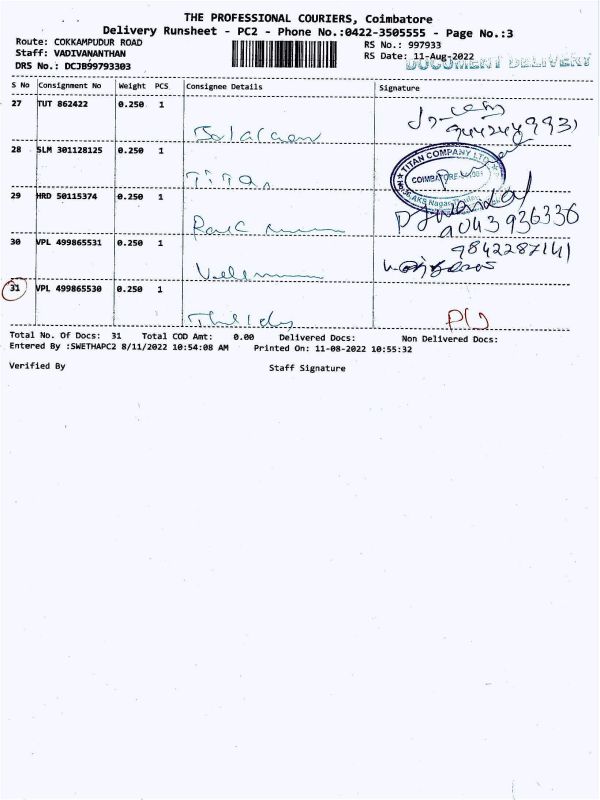 THE PROFESSIONAL COURIERS, Coimbatore
Delivery Runsheet - PC2 - Phone No.:0422-3505555 - Page No.:3
Route: COKKAMPUDUR ROAD
RS No.: 997933
Staff: VADIVANANTHAN
RS Date: 11-Aug-2022
DRS No.: DCJB99793303
DOCUMENT DELIVERY
S No Consignment No Weight PCS Consignee Details Signature
27 TUT 862422 0.250 1
28 SLM 301128125 0.250 1
TITAN COMPANY LTD
COIMBATORE
29 HRD 50115374 0.250 1
9043936336
30 VPL 499865531 0.250 1
9842287141
31 VPL 499865530 0.250 1
Total No. Of Docs: 31 Total COD Amt: 0.00 Delivered Docs: Non Delivered Docs:
Entered By :SWETHAPC2 8/11/2022 10:54:08 AM Printed On: 11-08-2022 10:55:32
Verified By Staff Signature